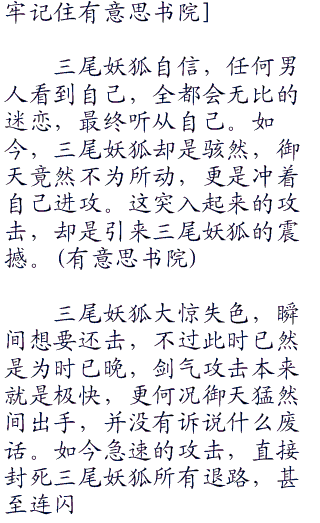 牢记住有意思书院]
三尾妖狐自信，任何男
人看到自己，全都会无比的
迷恋，最终听从自己。如
今，三尾妖狐却是骇然，御
天竟然不为所动，更是冲着
自己进攻。这突入起来的攻
击，却是引来三尾妖狐的震
撼。(有意思书院)
三尾妖狐大惊失色，瞬
间想要还击，不过此时已然
是为时已晚，剑气攻击本来
就是极快，更何况御天猛然
间出手，并没有诉说什么废
话。如今急速的攻击，直接
封死三尾妖狐所有退路，甚
至连闪